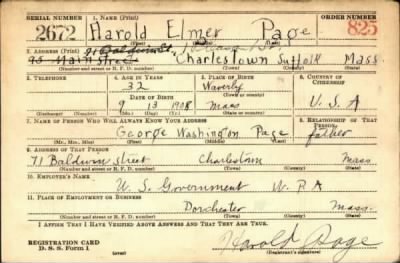 SERIAL NUMBER 1. NAME (Print) ORDER NUMBER
2672 Harold Elmer Page 825
(First) (Middle) (Last)
2. ADDRESS (Print) 91 Baldwin St.
95 Main Street Charlestown Suffolk Mass
(Number and street or R. F. D. number) (Town) (County) (State)
3. TELEPHONE 4. AGE IN YEARS 5. PLACE OF BIRTH 6. COUNTRY OF CITIZENSHIP
32 Waverly
DATE OF BIRTH (Town or county)
9 13 1908 Mass U. S. A
(Exchange) (Number) (Mo.) (Day) (Yr.) (State or country)
7. NAME OF PERSON WHO WILL ALWAYS KNOW YOUR ADDRESS 8. RELATIONSHIP OF THAT PERSON
George Washington Page father
(Mr., Mrs., Miss) (First) (Middle) (Last)
9. ADDRESS OF THAT PERSON
71 Baldwin Street Charlestown Mass
(Number and street or R. F. D. number) (Town) (County) (State)
10. EMPLOYER'S NAME
U. S. Government W. P. A
11. PLACE OF EMPLOYMENT OR BUSINESS
Dorchester Mass.
(Number and street or R. F. D. number) (Town) (County) (State)
I AFFIRM THAT I HAVE VERIFIED ABOVE ANSWERS AND THAT THEY ARE TRUE.
REGISTRATION CARD Harold Page
D. S. S. Form 1 (over) (Registrant's signature)